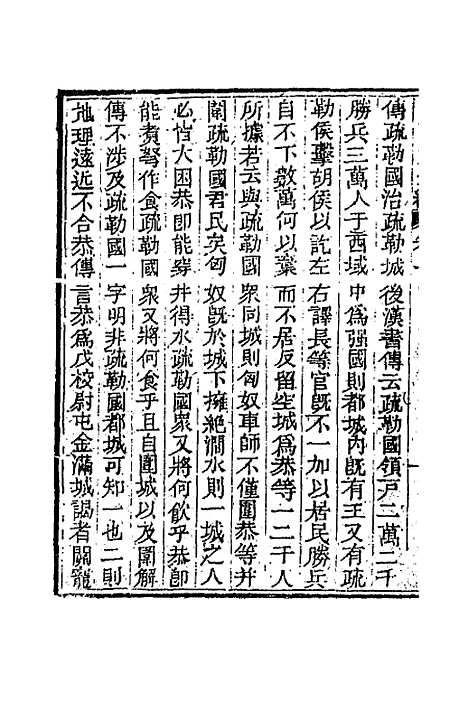 傳疏勒國治疏勒城後漢書傳云疏勒國領戶二萬二千
勝兵三萬人于西域中爲強國則都城內旣有王又有疏
勒侯擊胡侯以訖左右譯長等官旣不一加以居民勝兵
自不下數萬何以棄而不居反留空城爲恭等一二千人
所據若云與疏勒國衆同城則匈奴車師不僅圍恭等并
闔疏勒國君民矣匈奴旣於城下擁絕澗水則一城之人
必皆大困恭卽能穿井得水疏勒國衆又將何飲乎恭卽
能煮弩作食疏勒國衆又將何食乎且自圍城以及圍解
傳不涉及疏勒國一字明非疏勒國都城可知一也二則
地理遠近不合恭傳言恭爲戊校尉屯金滿城謁者關寵